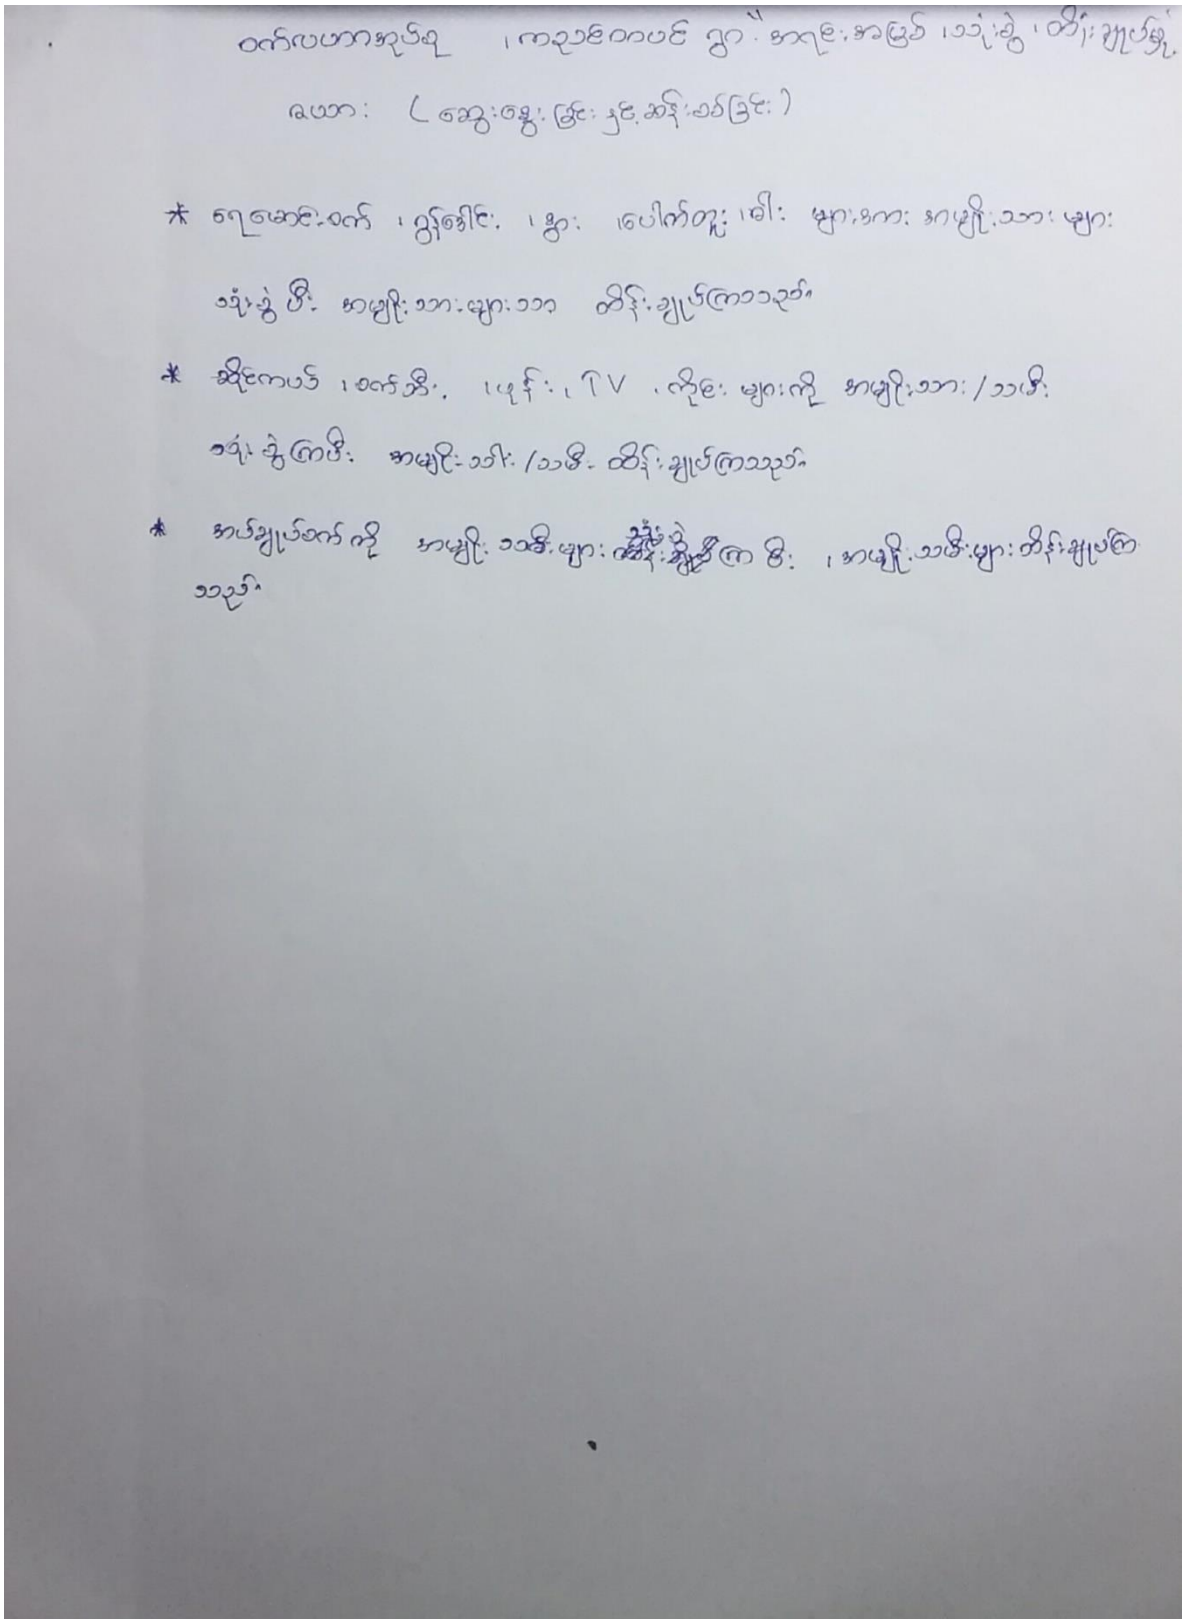 ဝက်လယာအုပ်စု ၊ ကညင်တပင် ရွာ ၏ အရင်းအမြစ် ၊ သုံးစွဲ ၊ ထိန်းချုပ်မှု
ဇယား ( ဆွေးနွေးခြင်း နှင့် ဆန်းစစ်ခြင်း )
* ရေမောင်းစက် ၊ ၊ နွား ၊ ပေါက်တူး ၊ ဓါး များအား အမျိုးသား များ
သုံးစွဲ ပြီး အမျိုးသားများသာ ထိန်းချုပ်ကြသည်။
* ဆိုင်ကယ် ၊ စက်ဘီး ၊ ဖုန်း ၊ TV ၊ များကို အမျိုးသား / သမီး
သုံးစွဲကြပြီး အမျိုးသား / သမီး ထိန်းချုပ်ကြသည်။
* အပ်ချုပ်စက် ကို အမျိုးသမီးများ သုံးစွဲကြပြီး ၊ အမျိုးသမီးများ ထိန်းချုပ်ကြ
သည်။